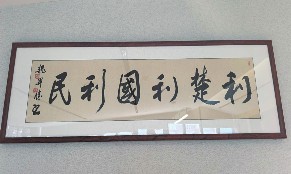 利楚利國利民